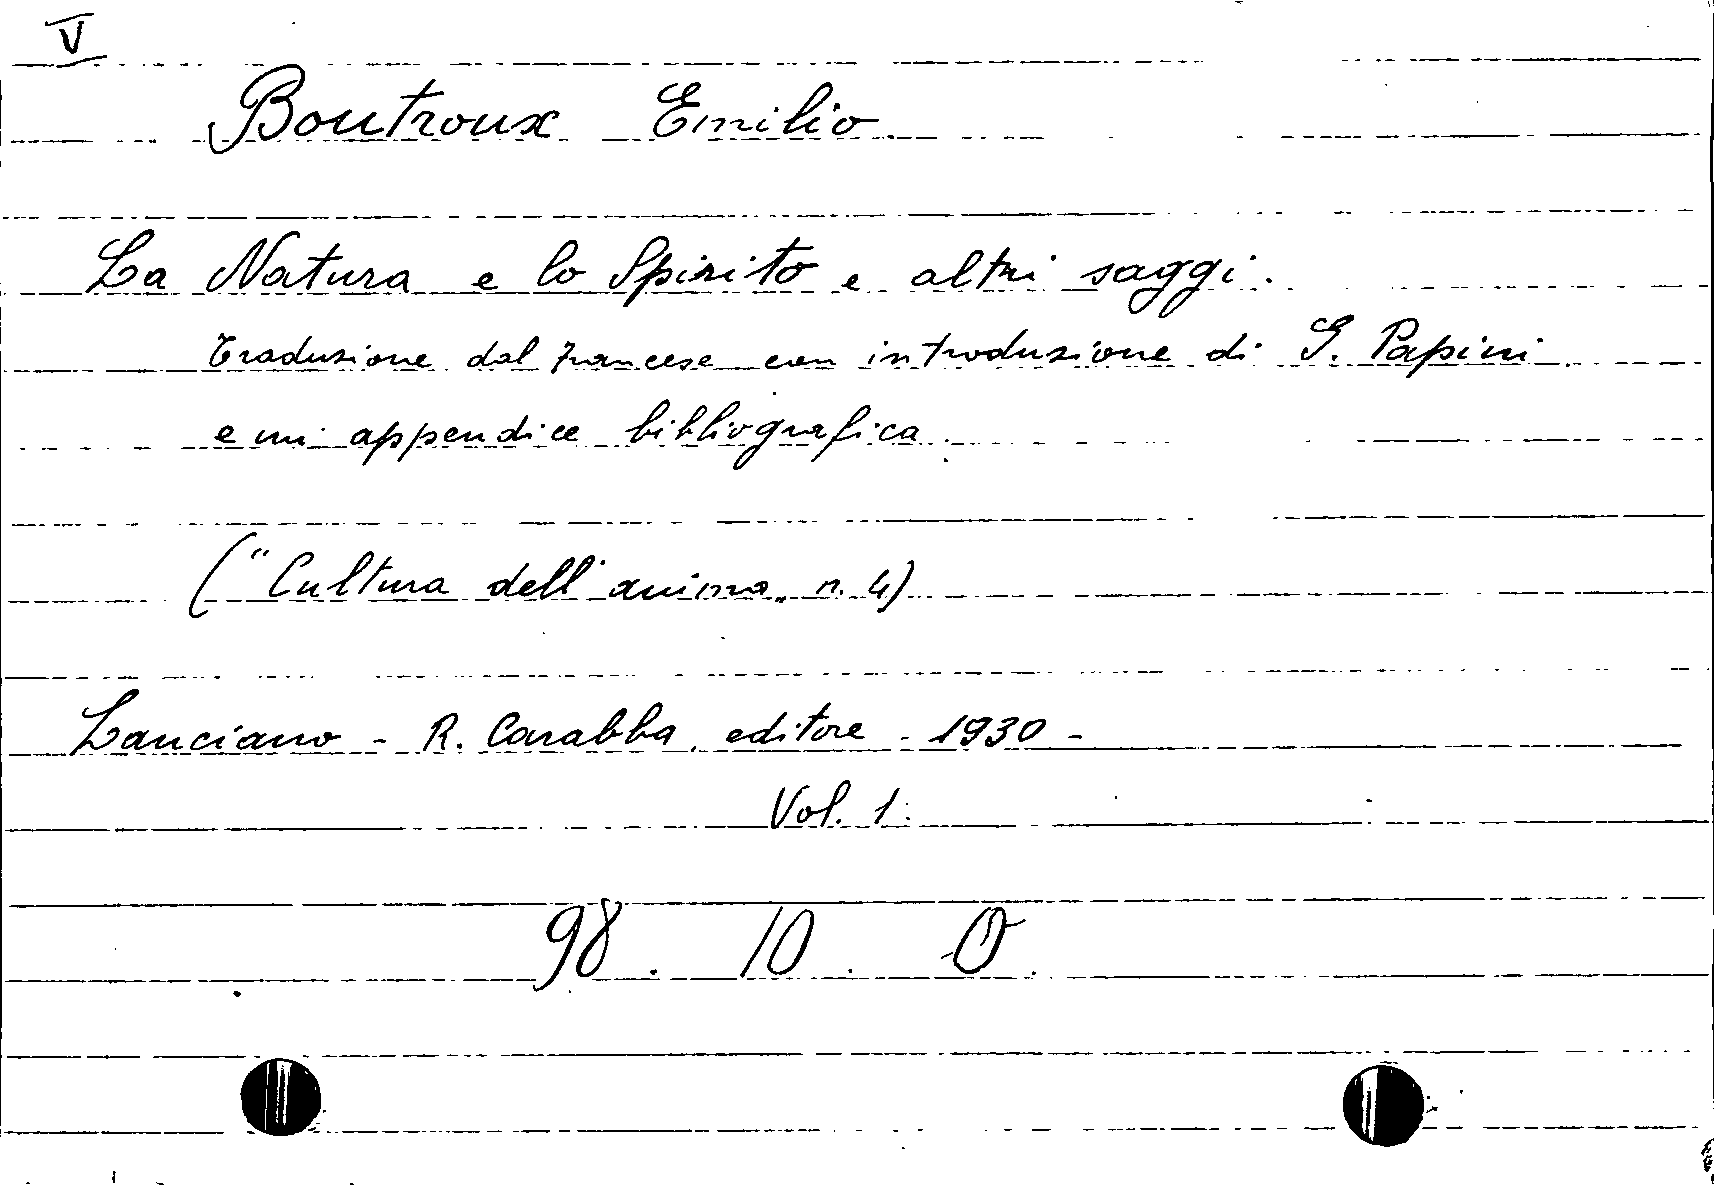 V
Boutroux Emilio
La Natura e lo Spirito e altri saggi.
Traduzione dal francese con introduzione di G. Papini
e un appendice bibliografica
("Cultura dell'anima" n. 4)
Lanciano - R. Carabba, editore - 1930 -
Vol. 1.
98. 10. 0.